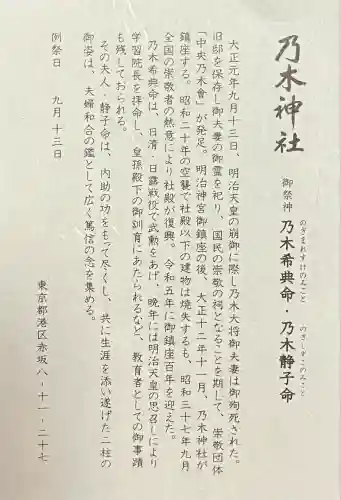 乃木神社
御祭神
乃木希典命・乃木静子命
のぎまれすけのみこと
のぎしずこのみこと
大正元年九月十三日、明治天皇の崩御に際し乃木大将御夫妻は御殉死された。
旧邸を保存し御夫妻の御霊を祀り、国民の崇敬の祠となることを期して、崇敬団体
「中央乃木會」が発足。明治神宮御鎮座の後、大正十二年十一月、乃木神社が
鎮座する。昭和二十年の空襲で社殿以下の建物は焼失するも、昭和三十七年九月
全国の崇敬者の熱意により社殿が復興。令和五年に御鎮座百年を迎えた。
乃木希典命は、日清・日露戦役で武勲をあげ、晩年には明治天皇の思召しにより
学習院長を拝命し、皇孫殿下の御訓育にあたられるなど、教育者としての御事蹟
も残しておられる。
その夫人・静子命は、内助の功をもって尽くし、共に生涯を添い遂げた二柱の
御姿は、夫婦和合の鑑として広く篤信の念を集める。
例祭日　九月十三日
東京都港区赤坂八-十一-二十七